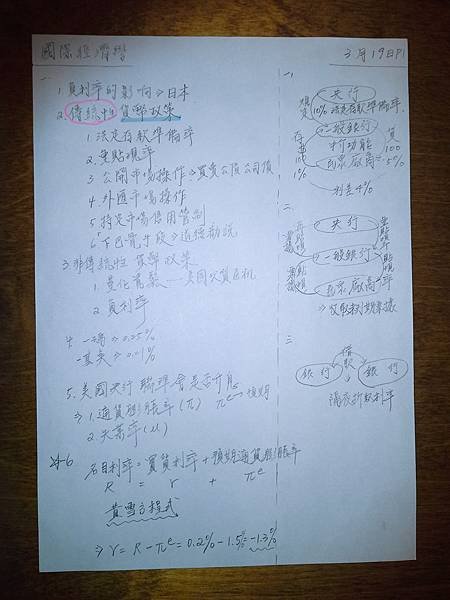 國際經濟瞥
3月19日P1
一
1.負利率的影响⇒日本
2.傳統性 貨幣政策
1.法定存款準備率
2.重貼現率
3.公開市場操作⇒買賣公債公司債
4.外匯市場操作
5.特定市場信用管制
6.下巴骨手段⇒道德勸說
3.非傳統性 貨幣政策
1.量化寬鬆 美國次貸危机
2.負利率
4 一碼⇒0.25%
一基点⇒0.01%
5.美國央行聯準會是否升息
⇒1.通貨膨脹率(π) πe→預期
2.失業率(u)
※6
名目利率=實質利率+預期通貨膨脹率
R = r + πe
費雪方程式
⇒ r = R - πe = 0.2% - 1.5% = -1.3%
一、
央行
10% 法定存款準備率
一般銀行
存 貸
100 100
1% 5%
民眾 廠商
利差4%
二、
央行
重貼現率
一般銀行
貼現率
民眾 廠商
三
銀行 借款 銀行
隔夜拆款利率